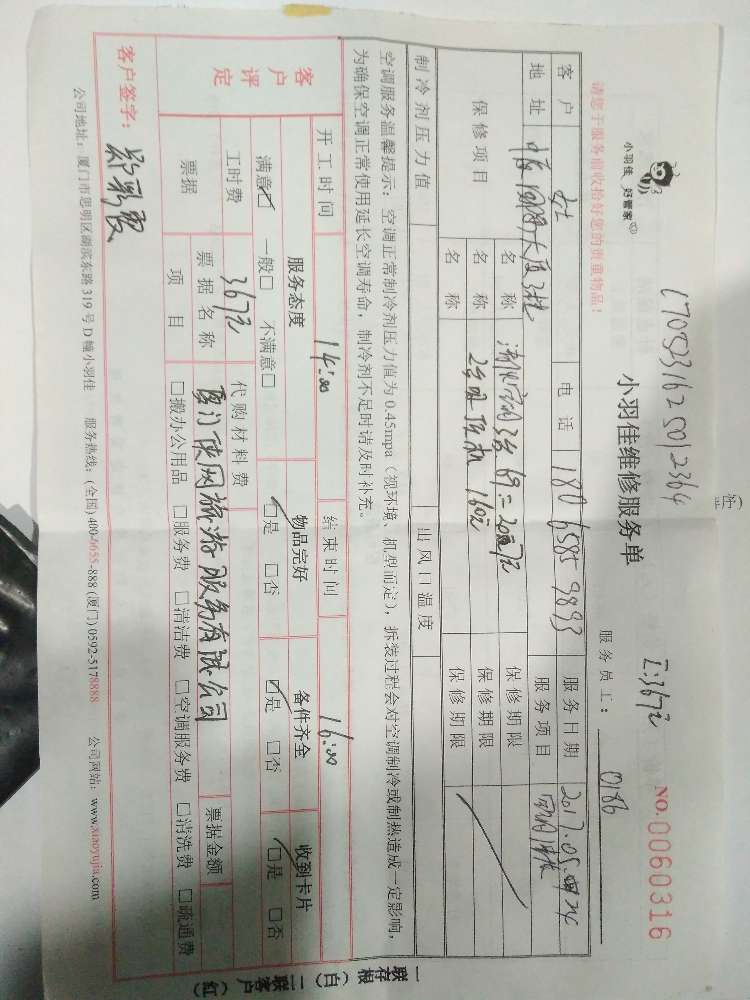 1705231625012364
小羽佳 好管家
小羽佳维修服务单
工:367元
NO.0060316
请您于服务前收拾好您的贵重物品!
服务员工: 0186
客户 女士 电话 180 6585 9893 服务日期 2017.05.24
地址 中 国际大厦3楼 服务项目
保修项目 名称 清洗空调3台 69 =207元 保修期限
名称 2台 160元 保修期限
名称 保修期限
制冷剂压力值 出风口温度
空调服务温馨提示: 空调正常制冷剂压力值为0.45mpa(视环境、机型而定),拆装过程会对空调制冷或制热造成一定影响,
为确保空调正常使用延长空调寿命,制冷剂不足时请及时补充。
开工时间 14:00 结束时间 16:00
客户评定
服务态度 物品完好 备件齐全 收到卡片
满意☑ 一般□ 不满意□ ☑是 □否 ☑是 □否 ☑是 □否
工时费 367元 代购材料费
票据 票据名称 厦门侠网旅游服务有限公司 票据金额
项目 □搬办公用品 □服务费 □清洁费 □空调服务费 □清洗费 □疏通费
客户签字:
公司地址:厦门市思明区湖滨东路319号D幢小羽佳 服务热线:(全国)400-6655-888 (厦门)0592-5178888 公司网站:www.xiaoyujia.com
一联存根(白) 二联客户(红)